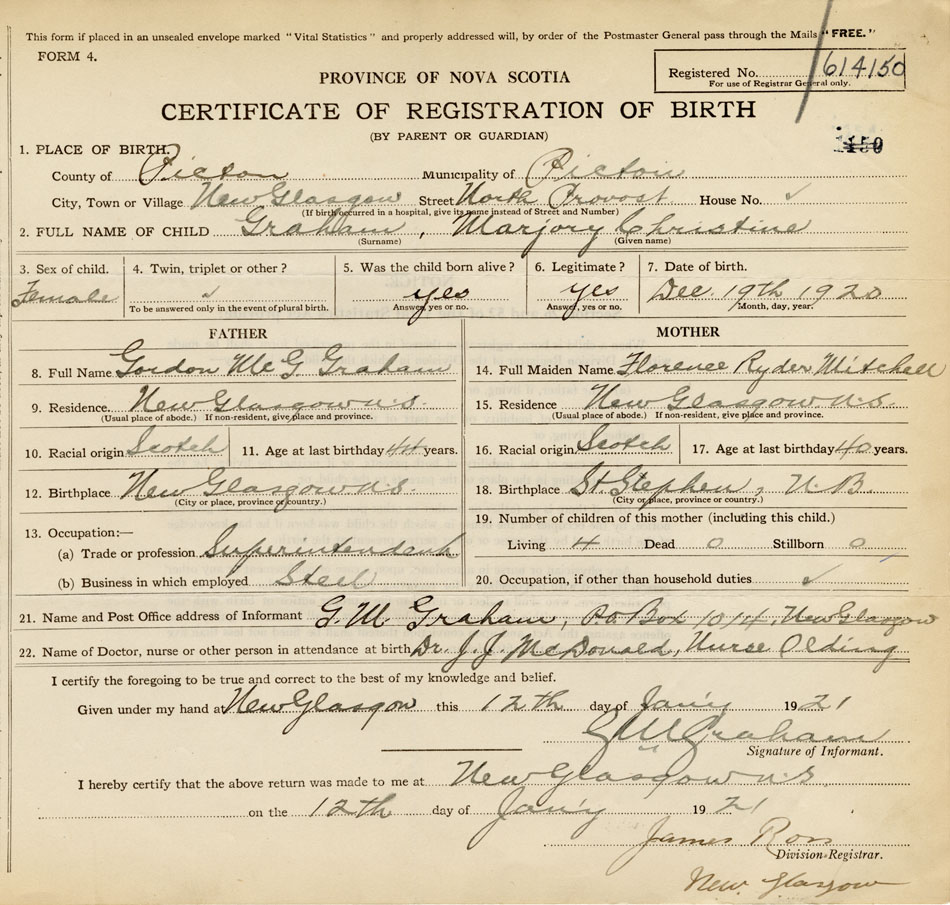 This form if placed in an unsealed envelope marked "Vital Statistics" and properly addressed will, by order of the Postmaster General pass through the Mails "FREE."
FORM 4.
PROVINCE OF NOVA SCOTIA
Registered No. 614150
For use of Registrar General only.
CERTIFICATE OF REGISTRATION OF BIRTH
(BY PARENT OR GUARDIAN)
150
1. PLACE OF BIRTH.
County of Picton Municipality of Picton
City, Town or Village New Glasgow Street North Provost House No. ✓
(If birth occurred in a hospital, give its name instead of Street and Number)
2. FULL NAME OF CHILD Graham, Marjory Christine
(Surname) (Given name)
3. Sex of child. 4. Twin, triplet or other? 5. Was the child born alive? 6. Legitimate? 7. Date of birth.
Female ✓ yes yes Dec. 19th 1920
To be answered only in the event of plural birth. Answer, yes or no. Answer, yes or no. Month, day, year.
FATHER
8. Full Name Gordon McG Graham
9. Residence New Glasgow N.S.
(Usual place of abode.) If non-resident, give place and province.
10. Racial origin Scotch 11. Age at last birthday 44 years.
12. Birthplace New Glasgow N.S.
(City or place, province or country.)
13. Occupation:—
(a) Trade or profession Superintendent
(b) Business in which employed Steel
MOTHER
14. Full Maiden Name Florence Ryder Mitchell
15. Residence New Glasgow N.S.
(Usual place of abode.) If non-resident, give place and province.
16. Racial origin Scotch 17. Age at last birthday 40 years.
18. Birthplace St. Stephen, N.B.
(City or place, province or country.)
19. Number of children of this mother (including this child.)
Living 4 Dead 0 Stillborn 0
20. Occupation, if other than household duties ✓
21. Name and Post Office address of Informant G. M. Graham, P.O. Box 1014, New Glasgow
22. Name of Doctor, nurse or other person in attendance at birth Dr. J. J. McDonald, Nurse Olding
I certify the foregoing to be true and correct to the best of my knowledge and belief.
Given under my hand at New Glasgow this 12th day of Jan'y 1921
G M Graham
Signature of Informant.
I hereby certify that the above return was made to me at New Glasgow N.S
on the 12th day of Jan'y 1921
James Ross
Division Registrar.
New Glasgow